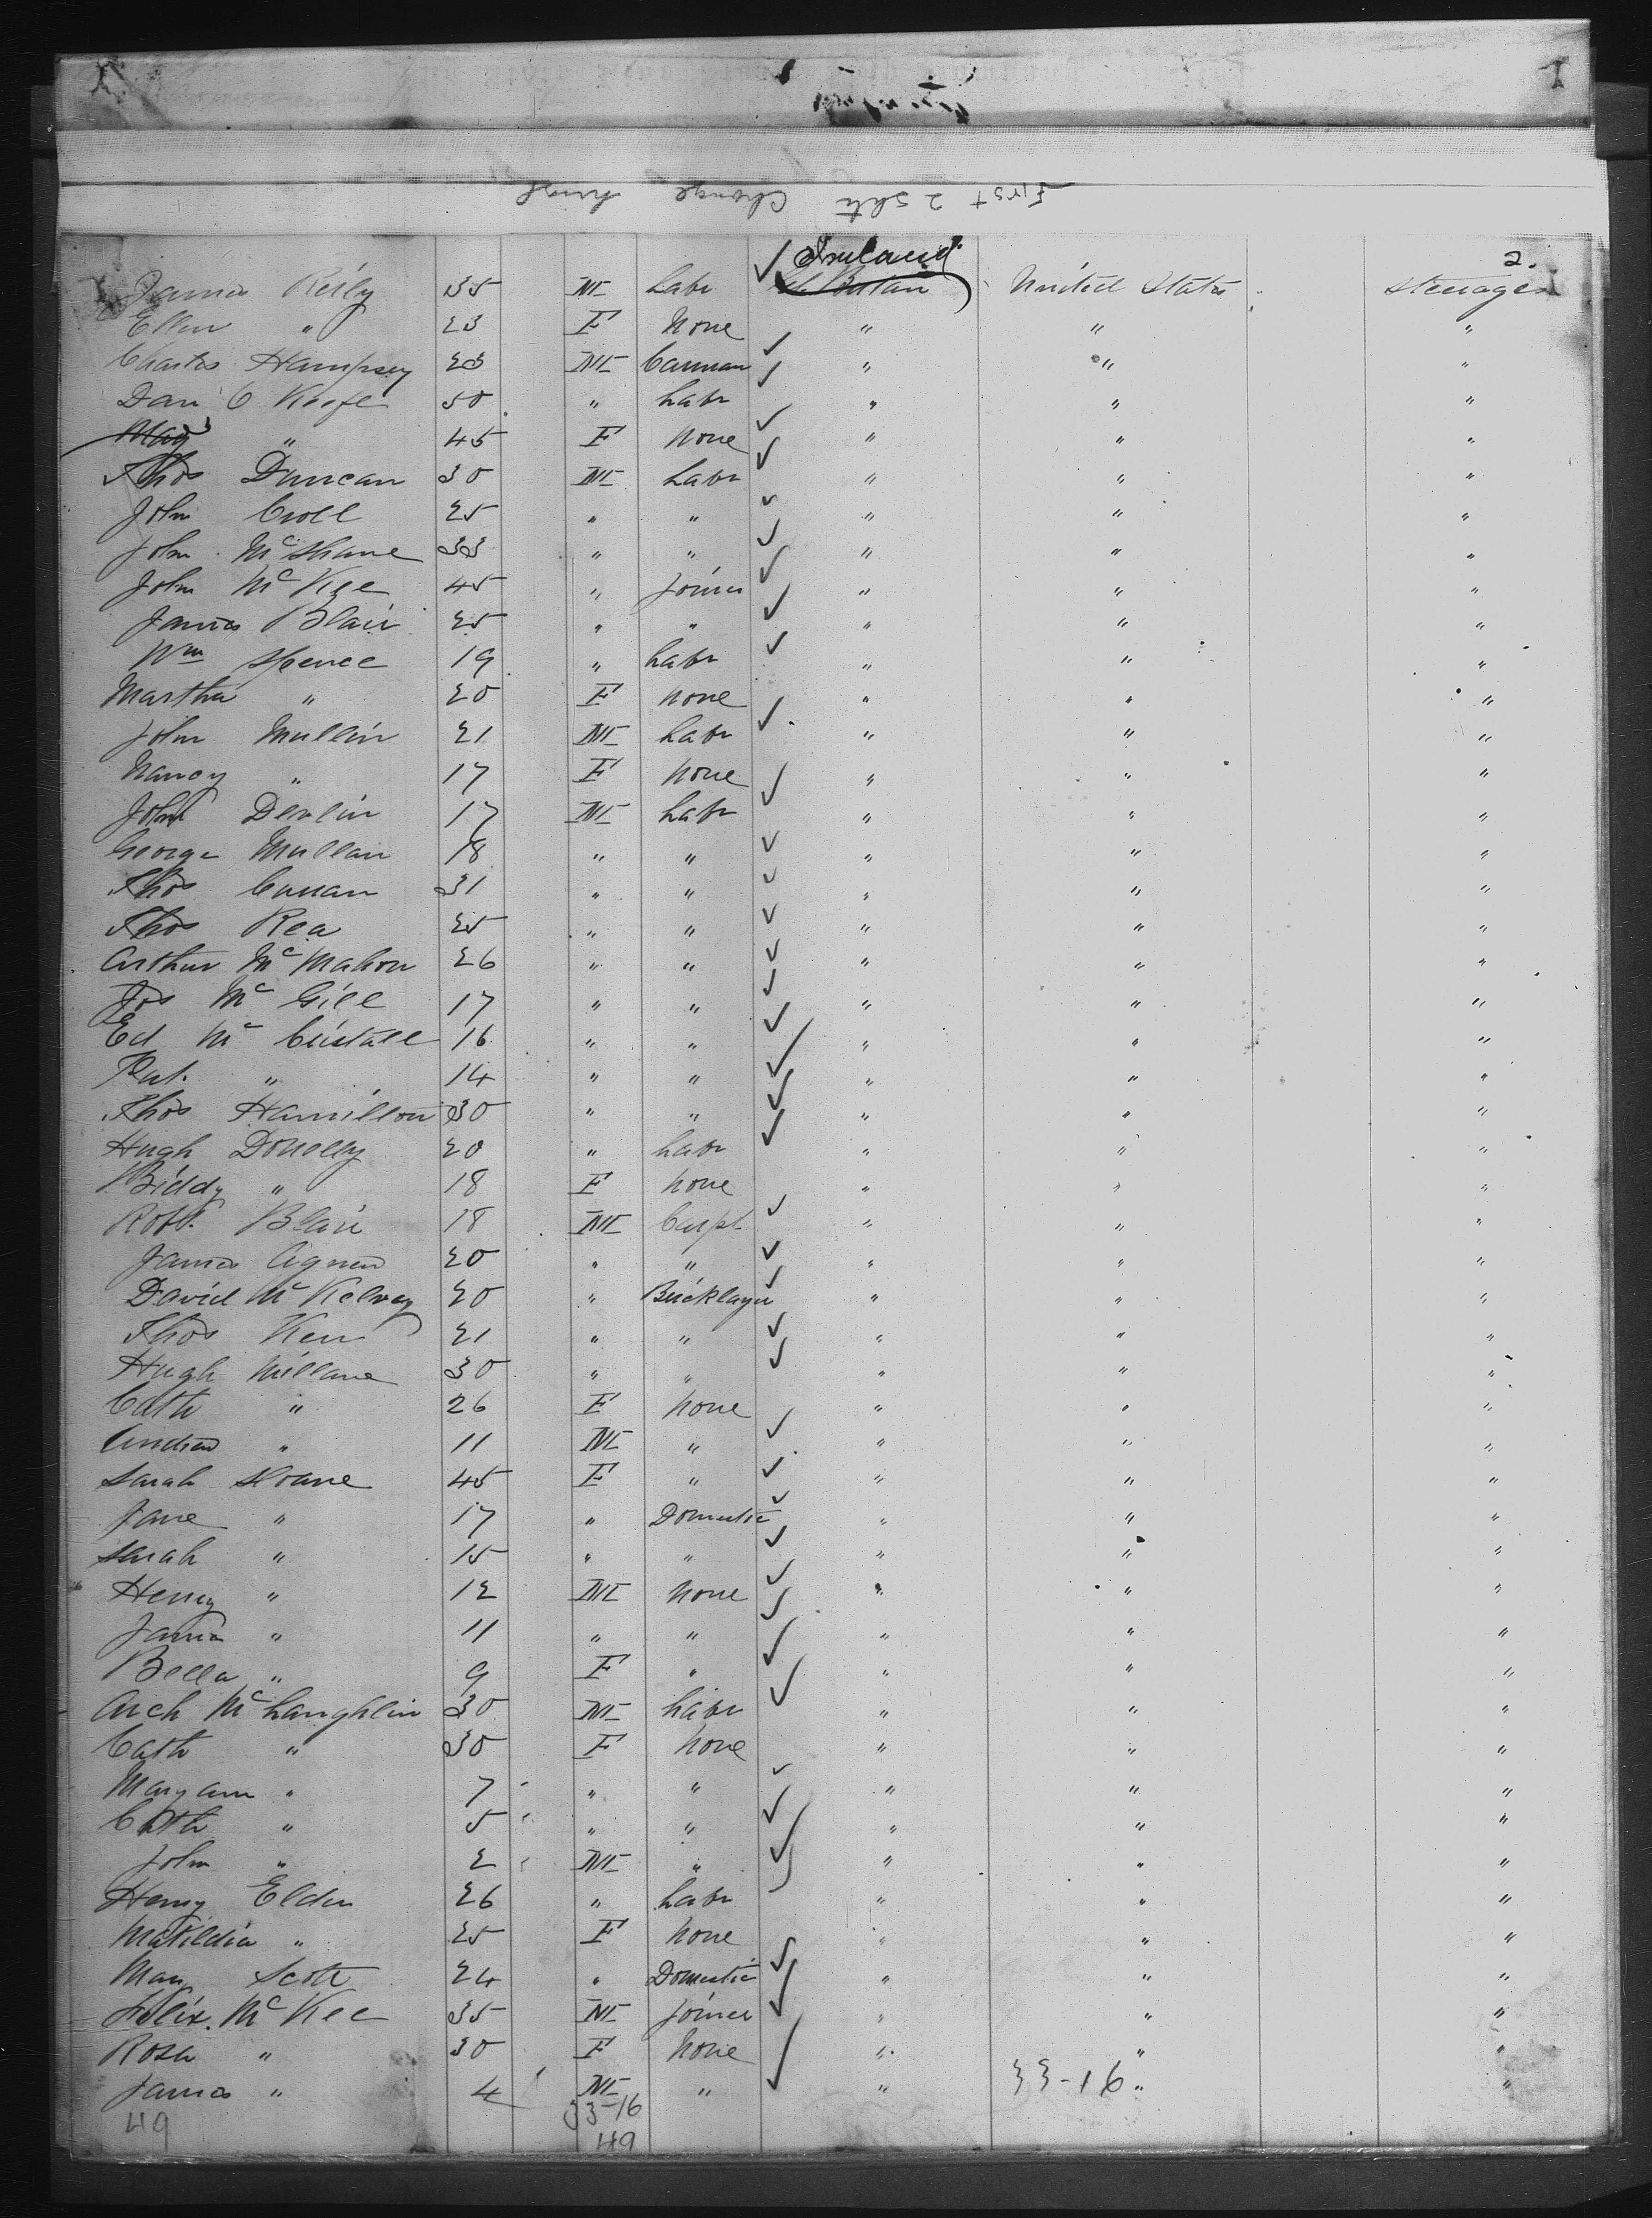 First 2 Slits Change hinge
Ireland
2.
James Reily 35 M Labr Gt Britain United States Steerage
Ellen " 23 F None " " "
Charles Hampsey 23 M Carman " " "
Dan O Keefe 50 " Labr " " "
Mary " 45 F None " " "
Thos Duncan 30 M Labr " " "
John Croll 25 " " " " "
John McShane 33 " " " " "
John McKee 45 " Joiner " " "
James Blair 25 " " " " "
Wm Spence 19 " Labr " " "
Martha " 20 F None " " "
John Mullin 21 M Labr " " "
Nancy " 17 F None " " "
John Devlin 17 M Labr " " "
George Mullan 18 " " " " "
Thos Curran 31 " " " " "
Thos Rea 25 " " " " "
Arthur McMahon 26 " " " " "
Jos McGill 17 " " " " "
Ed Mc 16 " " " " "
Pat. " 14 " " " " "
Thos Hamilton 30 " " " " "
Hugh Donelly 20 " Labr " " "
Biddy " 18 F None " " "
Robt. Blair 18 M Carpt " " "
James Agnew 20 " " " " "
David McKelvey 20 " Bricklayer " " "
Thos Kerr 21 " " " " "
Hugh Millane 30 " " " " "
Cath " 26 F None " " "
Andrew " 11 M " " " "
Sarah Sloane 45 F " " " "
Jane " 17 " Domestic " " "
Sarah " 15 " " " " "
Henry " 12 M None " " "
James " 11 " " " " "
Bella " 9 F " " " "
Arch McLaughlin 30 M Labr " " "
Cath " 30 F None " " "
Maryann " 7 " " " " "
Cath " 5 " " " " "
John " 2 M " " " "
Henry Elder 26 " Labr " " "
Matildia " 25 F None " " "
Mary Scott 24 " Domestic " " "
Felix. McKee 35 M Joiner " " "
Rosa " 30 F None " " "
James " 4 M " " 33-16 " "
33-16
49 49